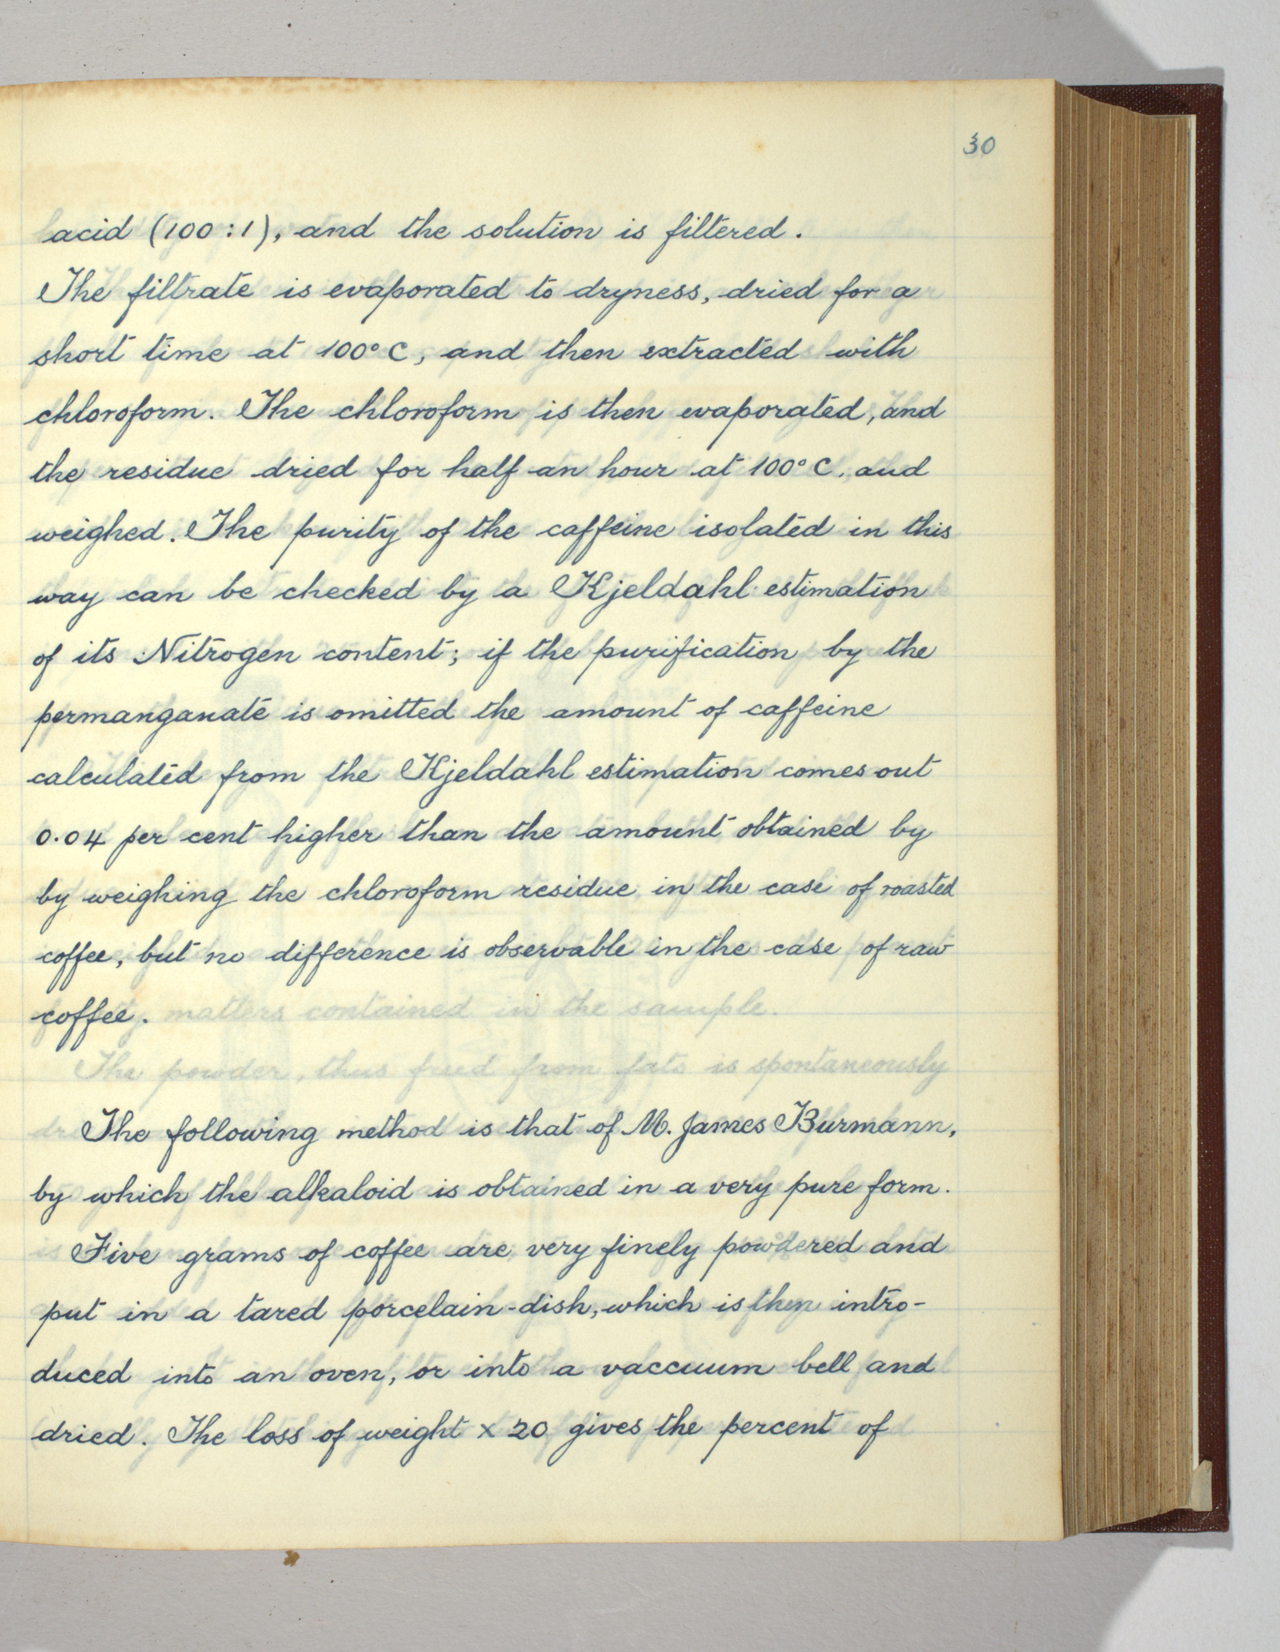 30
acid (100:1), and the solution is filtered.
The filtrate is evaporated to dryness, dried for a
short time at 100° C, and then extracted with
chloroform. The chloroform is then evaporated, and
the residue dried for half an hour at 100° C. and
weighed. The purity of the caffeine isolated in this
way can be checked by a Kjeldahl estimation
of its Nitrogen content; if the purification by the
permanganate is omitted the amount of caffeine
calculated from the Kjeldahl estimation comes out
0.04 per cent higher than the amount obtained by
by weighing the chloroform residue in the case of roasted
coffee, but no difference is observable in the case of raw
coffee.
matters contained in the sample.
The powder, thus freed from fats is spontaneously
The following method is that of M. James Burmann,
by which the alkaloid is obtained in a very pure form.
Five grams of coffee are very finely powdered and
put in a tared porcelain-dish, which is then intro-
duced into an oven, or into a vaccuum bell and
dried. The loss of weight x 20 gives the percent of